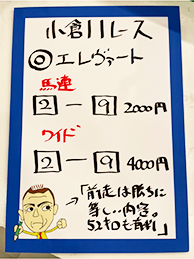 小倉11レース
◎エレヴァート
馬連
2－9 2000円
ワイド
2－9 4000円
「前走は勝ちに
等しい内容。
52キロも有利」